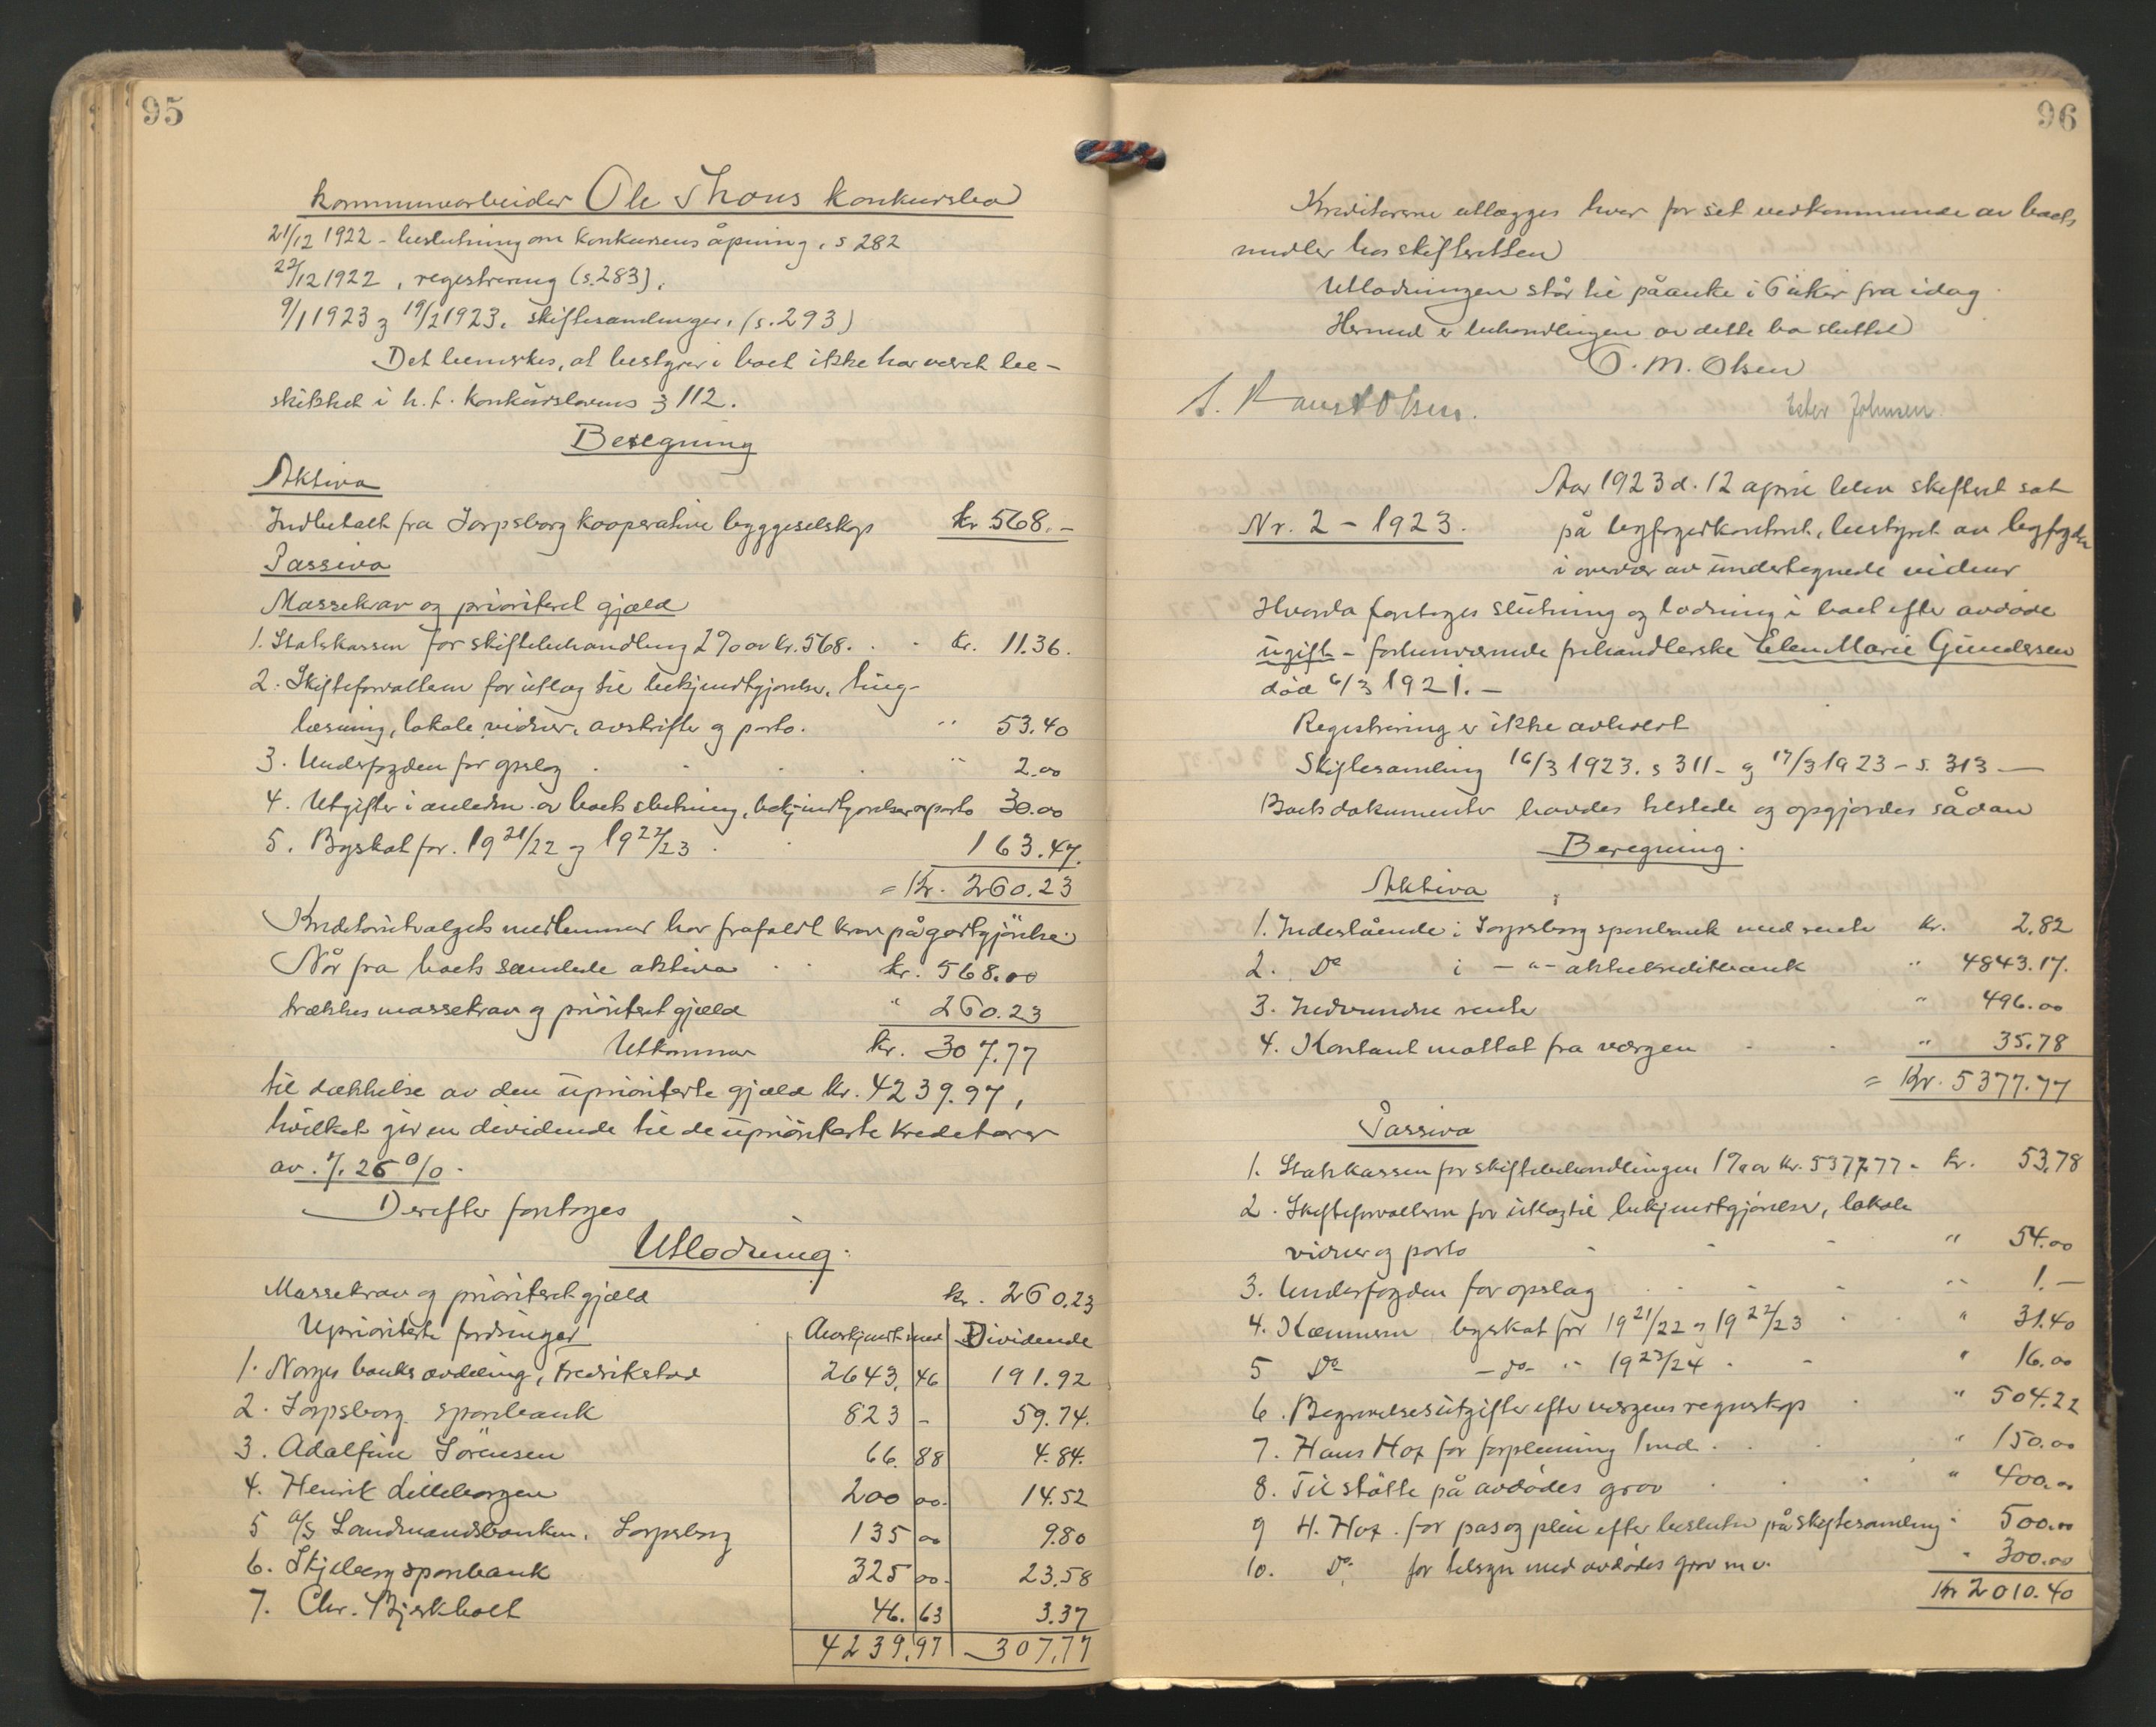 95
kommunearbeider Ole Thons konkursbo
21/12 1922 - beslutning om konkursens åpning, s 282
22/12 1922, registrering (s.283).
9/1 1923 og 19/2 1923. skiftesamlinger. (s.293)
Det bemerkes, at bestyrer i boet ikke har været be-
skikket i h.t. konkurslovens § 112.
Beregning
Aktiva
Indbetalt fra Sarpsborg kooperative byggeselskap kr 568.-
Passiva
Massekrav og prioritert gjæld
1. Statskassen for skiftebehandling 2% av kr. 568. . - kr. 11.36.
2. Skifteforvalteren for utlæg til bekjendtgjørelse, ting-
læsning, lokale, vidner, avskrifter og porto. " 53.40
3. Underfogden for opslag . - . . " 2.00
4. Utgifter i anledn. av boets slutning, bekjendtgjørelser og porto 30.00
5. Byskat for 1921/22 og 1922/23 . . 163.47.
= Kr. 260.23
Kreditorutvalgets medlemmer har frafaldt krav på godtgjörelse.
Når fra boets samlede aktiva . . kr. 568.00
trækkes massekrav og prioritert gjæld " 260.23
Utkommer kr. 307.77
til dækkelse av den uprioriterte gjæld kr. 4239.97,
hvilket gir en dividende til de uprioriterte kreditorer
av 7.26 %.
Derefter foretoges
Utlodning.
Massekrav og prioritert gjæld kr. 260.23
Uprioriterte fordringer Anerkjendt med Dividende
1. Norges banks avdeling, Fredrikstad 2643.46 191.92
2. Sarpsborg sparebank 823 - 59.74.
3. Adolfine Sörensen 66.88 4.84.
4. Henrik Lilleborgen 200 00. 14.52
5 A/S Landmandsbanken, Sarpsborg 135 00 9.80
6. Skjeberg sparebank 325 00. 23.58
7. Chr. Bjerkholt 46.63 3.37
4239.97 - 307.77
96
Kreditorerne utlægges hver for sit vedkommende av boets
midler hos skifteretten
Utlodningen står til påanke i 6 uker fra idag.
Hermed er behandlingen av dette bo sluttet
O. M. Olsen
Ester Johnsen.
Aar 1923 d. 12 april blev skifteret sat
Nr. 2 - 1923. på byfogedkontoret, bestyret av byfogden
i overvær av undertegnede vidner
Hvorda foretoges slutning og lodning i boet efter avdøde
ugift - forhenværende frihandlerske Elen Marie Gundersen
död 6/3 1921. -
Registrering er ikke avholdt
Skiftesamling 16/3 1923. s 311 - og 17/3 1923 - s. 313 -
Boets dokumenter havdes tilstede og opgjordes sådan
Beregning.
Aktiva
1. Indestående i Sarpsborg sparebank med rente kr. 2.82
2. Do i - " - aktiekreditbank " 4843.17.
3. Indvundne renter " 496.00
4. Kontant mottat fra værgen - . " 35.78
= Kr. 5377.77
Passiva
1. Statskassen for skiftebehandlingen 1% av kr. 5377.77 - kr. 53.78
2. Skifteforvalteren for utlæg til bekjendtgjörelser, lokale
vidner og porto - - - " 54.00
3. Underfogden for opslag . - - " 1.-
4. Kæmneren, byskat for 1921/22 og 1922/23 . . " 31.40
5 Do - do - " 1923/24 . - " 16.00
6. Begravelsesutgifter efter værgens regnskap . " 504.22
7. Hans Hoz for forpleining 1 md . . . " 150.00
8. Til stötte på avdödes grav . . . " 400.00
9 H. Hoz. for pas og pleie efter beslutn på skiftesamling " 500.00
10. Do for tilsyn med avdödes grav m v. " 300.00
Kr 2010.40